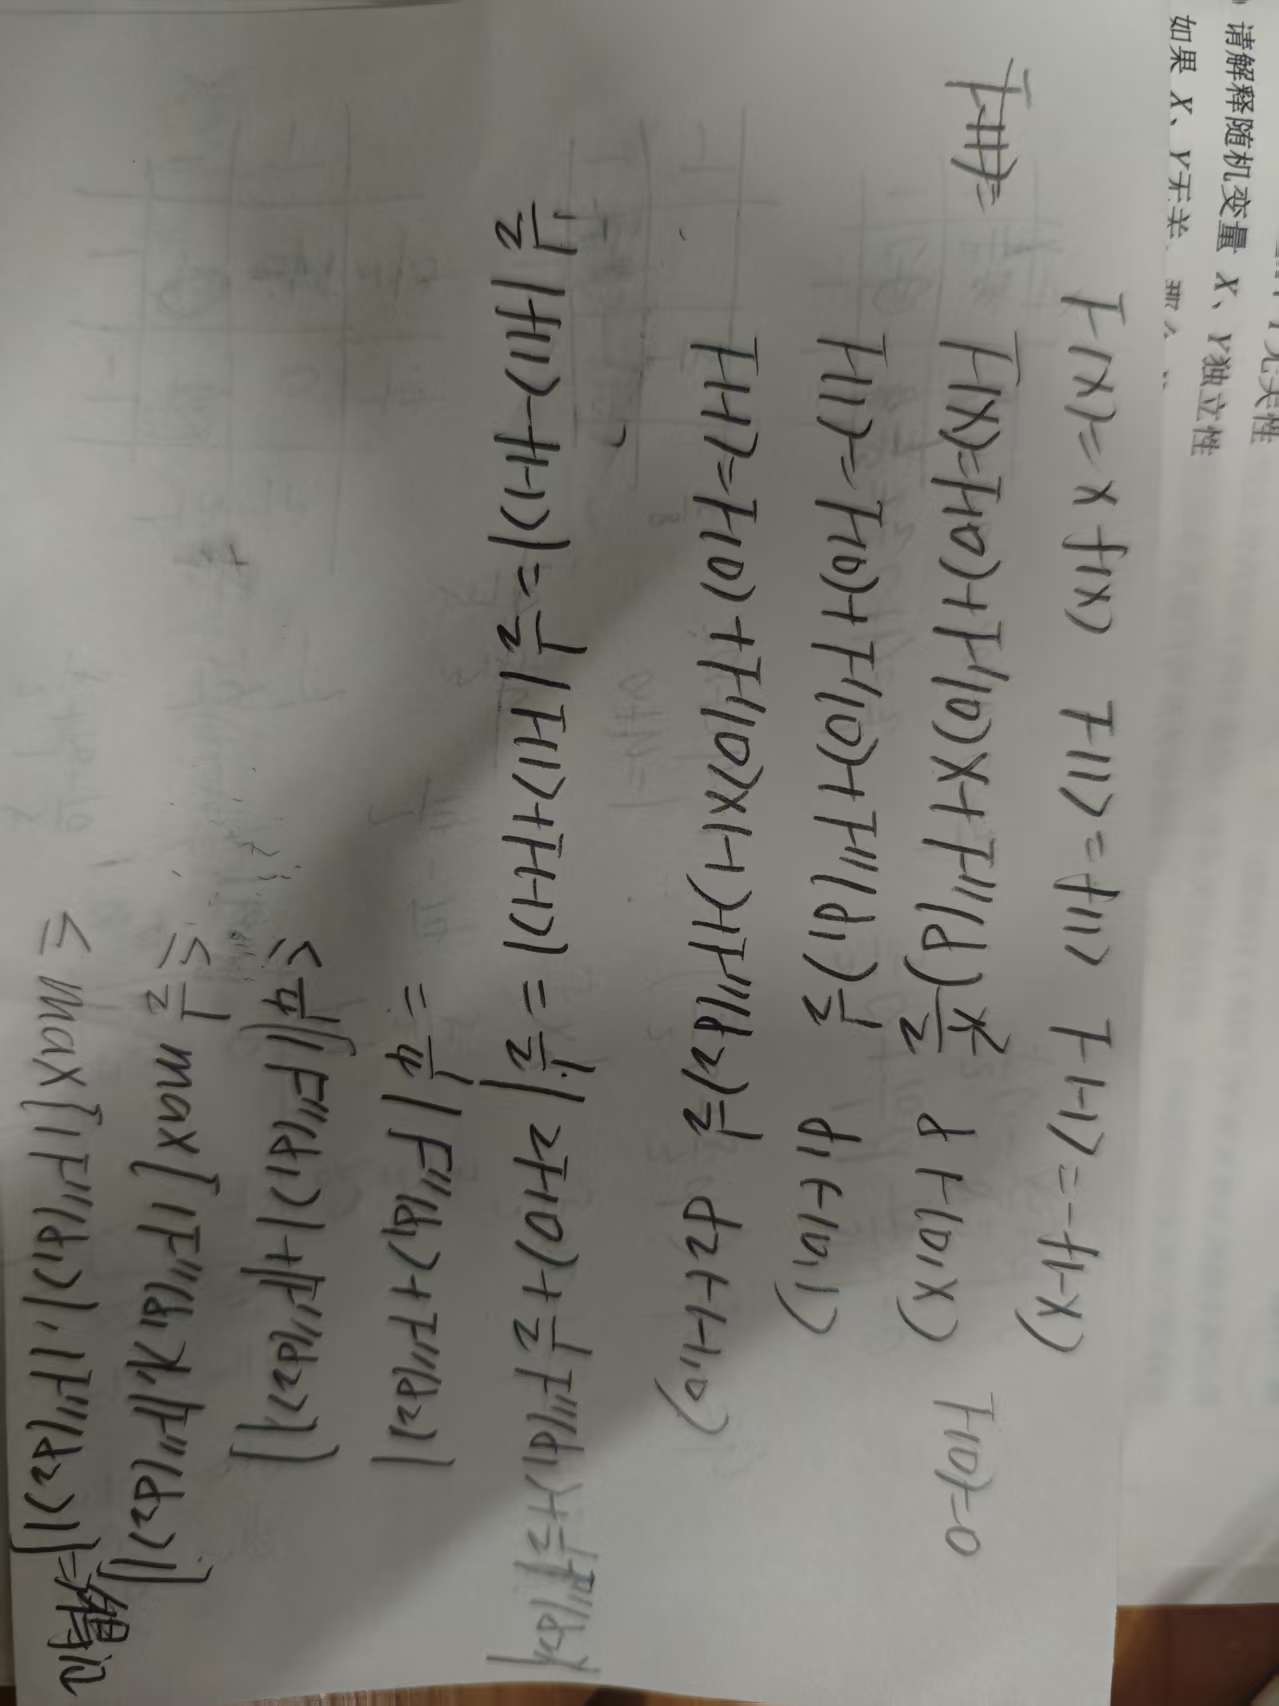 无关性
请解释随机变量 X、Y独立性
如果 X、Y无关
F(x)=x f(x) F(1)=f(1) F(-1)=-f(-x)
F(1)=
F(x)=F(0)+F'(0)x+F''(p)x²/2 p+(0,x) F(0)=0
F(1)=F(0)+F'(0)+F''(p1)1/2 p1+(0,1)
F(-1)=F(0)+F'(0)x(-1)+F''(p2)1/2 p2+(-1,0)
1/2|f(1)-f(-1)|=1/2|F(1)+F(-1)|=1/2|2F(0)+1/2F''(p1)+1/2F''(p2)|
=1/4|F''(p1)+F''(p2)|
≤1/4[|F''(p1)|+|F''(p2)|]
≤1/2 max[|F''(p1)|,|F''(p2)|]
≤max[|F''(p1)|,|F''(p2)|]=得证